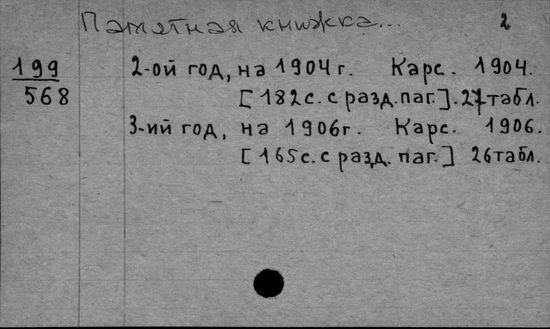 Памятная книжка... 2
199 2-ой год, на 1904 г. Карс. 1904.
568 [182 с. с разд. паг.]. 27 табл.
3-ий год, на 1906 г. Карс. 1906.
[165 с. с разд. паг.] 26 табл.